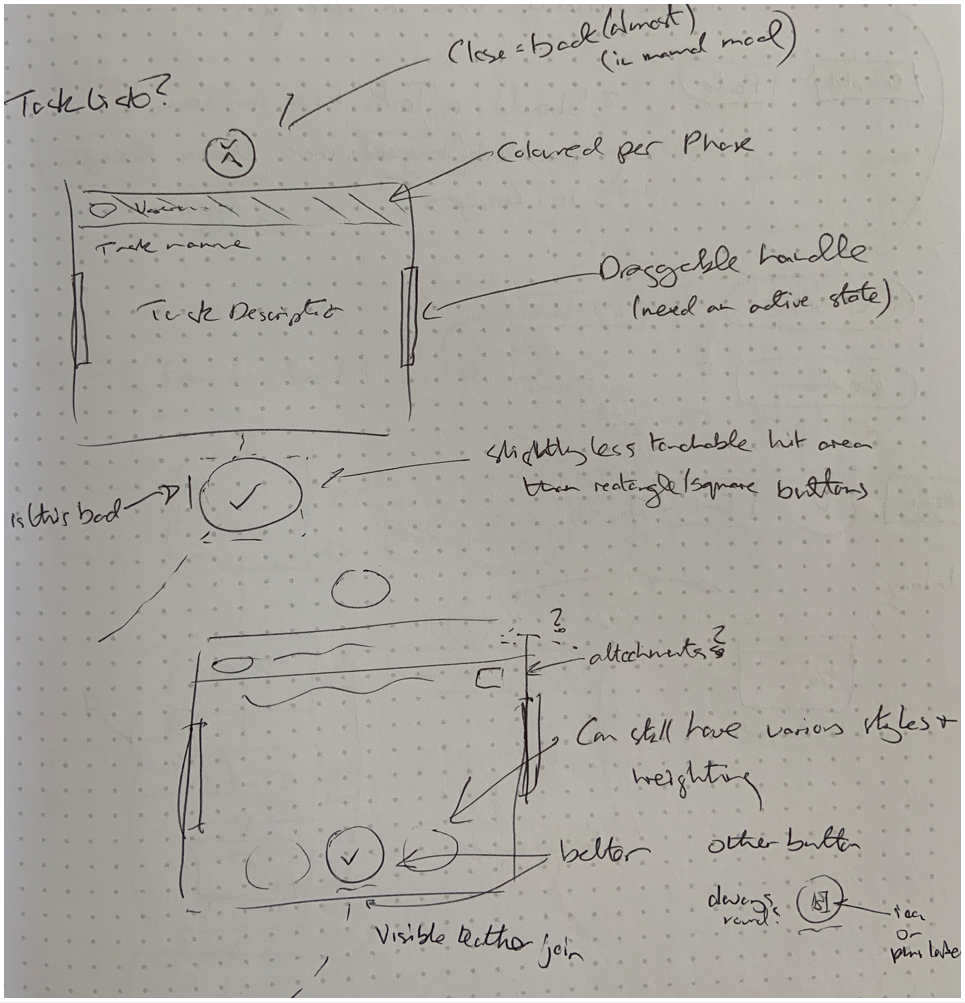 Close = back (almost)
(in manual mode)
Task Lists?
Coloured per Phase
Task name
Draggable handle
(need an active state)
Task Description
slightly less touchable hit area
than rectangle/square buttons
is this bad
?
attachments?
Can still have various styles +
weighting
better
other button
always
round?
icon
or
Visible tether join